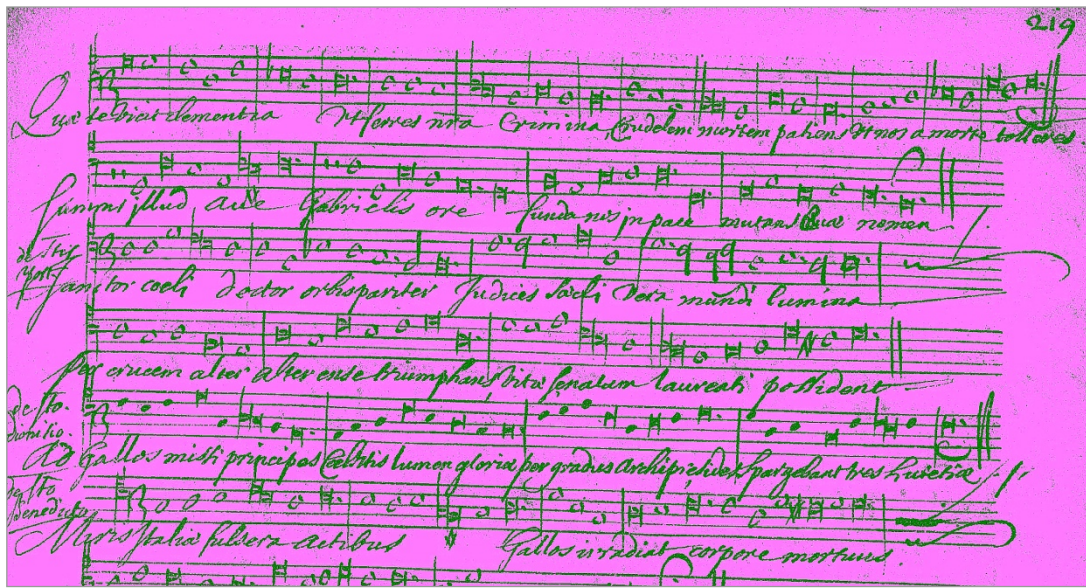 219
Quæ te Vicit clementia Ut ferres nr̃a Crimina, Crudelem mortem patiens Ut nos a morte tolleres.
Summi jllud ave Gabrielis ore funda nos jn pace mutans nomen
de
Janitor coeli Doctor orbis pariter Judices sæcli Vera mundi lumina
Per crucem alter alter ense triumphans Vitæ senatum laureati possident
de sto.
dionisio.
Ad Gallos misti principes Cælitis lumen gloriæ per gradus spargebant tres
de sto
Benedicto
Miris Italiæ fulsera actibus Gallos irradiat corpore mortuus